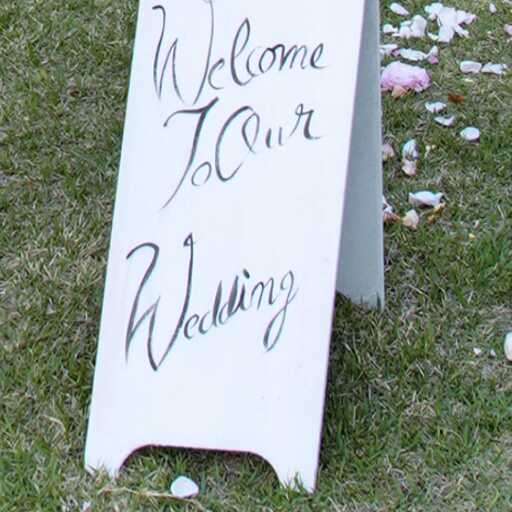 Welcome
To Our
Wedding